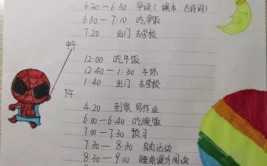 6:30 - 6:50 早读(课本 古诗词)
6:50 - 7:10 吃早饭
7:20 出门去学校
中午
12:00 吃午饭
12:40 - 1:30 午休
1:40 出门去学校
下午
4:20 到家 写作业
6:00 - 6:40 吃晚饭
7:30
7:30 - 8:30 自由活动
8:30 - 9:00 睡前课外阅读